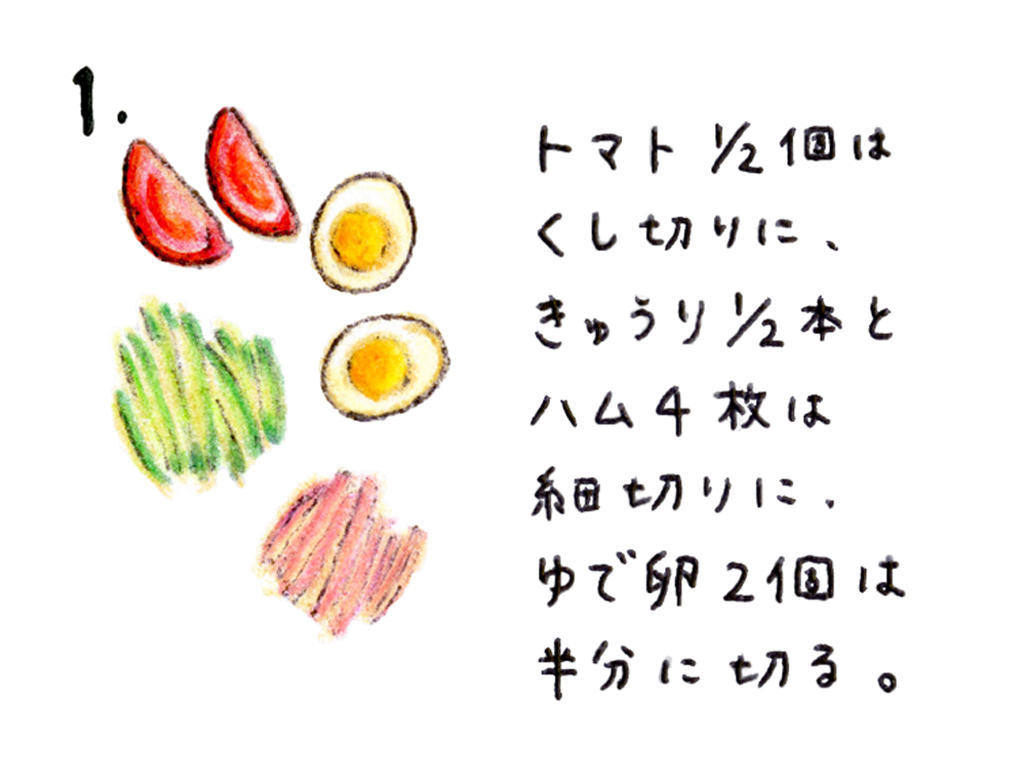 1.
トマト1/2個は
くし切りに、
きゅうり1/2本と
ハム4枚は
細切りに、
ゆで卵2個は
半分に切る。